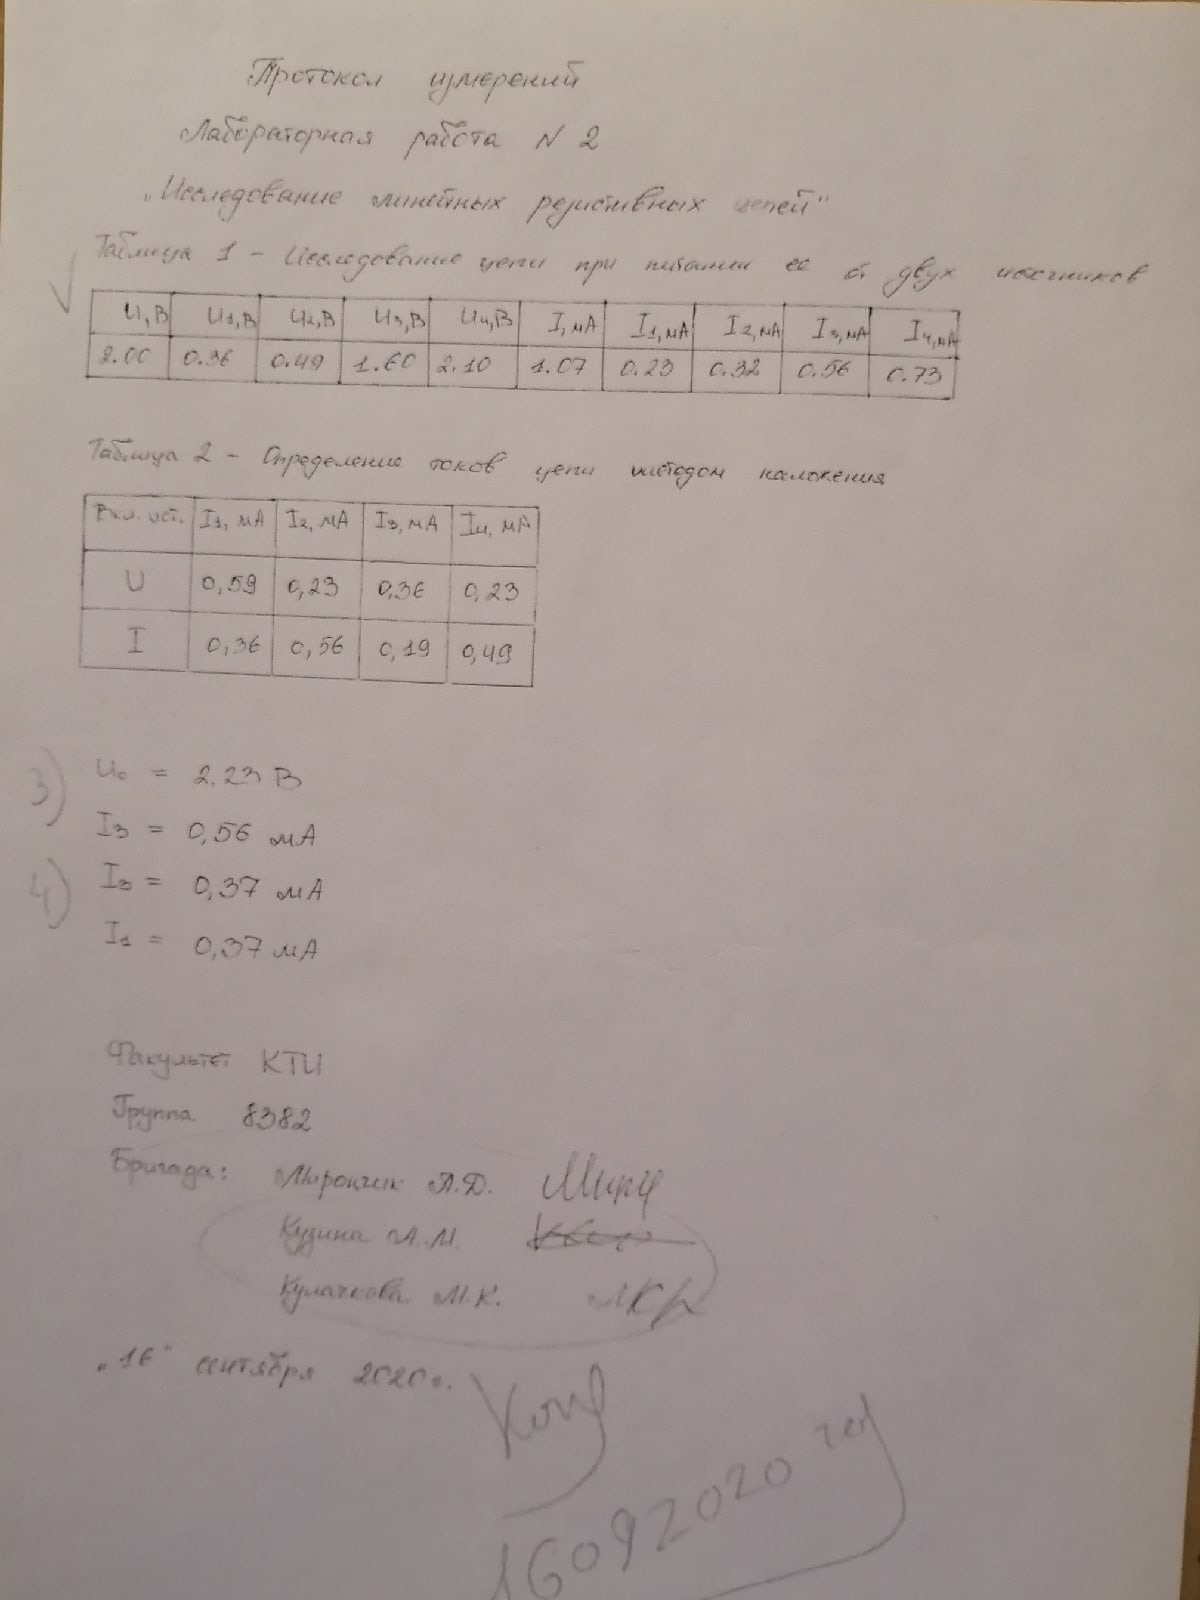 Протокол измерений
Лабораторная работа N 2
„Исследование линейных резистивных цепей"
Таблица 1 - Исследование цепи при питании ее от двух источников
U,В U1,В U2,В U3,В U4,В I,мА I1,мА I2,мА I3,мА I4,мА
2.00 0.36 0.49 1.60 2.10 1.07 0.23 0.32 0.56 0.73
Таблица 2 - Определение токов цепи методом наложения
Вкл. ист. I1, мА I2, мА I3, мА I4, мА
U 0,59 0,23 0,36 0,23
I 0,36 0,56 0,19 0,49
3) U0 = 2.23 В
I3 = 0,56 мА
4) I3 = 0,37 мА
I1 = 0,37 мА
Факультет КТИ
Группа 8382
Бригада: Мирончик П.Д.
Кузина А.М.
Кулачкова М.К.
„16" сентября 2020г.
16092020